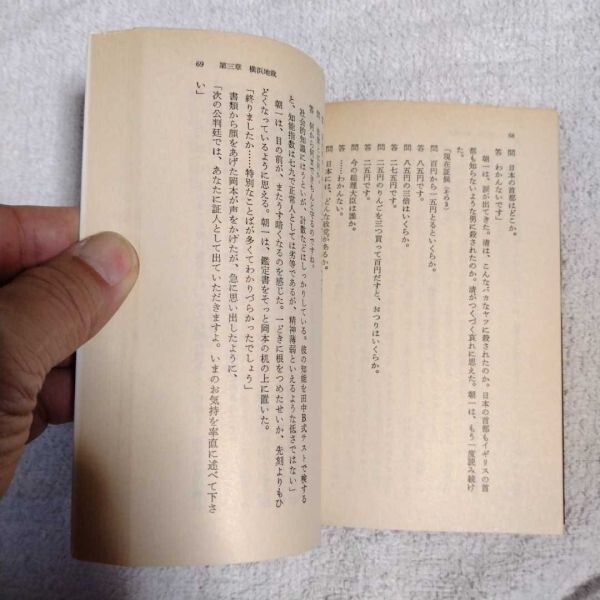 68
問　日本の首都はどこか。
答　わかんないです」
朝一は、涙が出てきた。清は、こんなバカなヤツに殺されたのか。日本の首都もイギリスの首
都も知らないような男に殺されたのか。清がつくづく哀れに思えた。朝一は、もう一度読み続け
た。
「現在証候（そのき）
問　百円から一五円とるといくらか。
答　八五円です。
問　八五円の三倍はいくらか。
答　二七五円です。
問　二五円のりんごを三つ買って百円だすと、おつりはいくらか。
答　二五円です。
問　今の総理大臣は誰か。
答　……わかんない。
問　日本には、どんな政党があるか。
69　第三章　横浜地裁
社会的知識にはうといが、計数などはしっかりしている。彼の知能を田中B式テストで検する
と、知能指数は七九で正常人としては劣等であるが、精神薄弱といえるような低さではない」
朝一は、目の前が、またうす暗くなるのを感じた。一どきに根をつめたせいか、先刻よりもひ
どくなっているように思える。朝一は、鑑定書をそっと岡本の机の上に置いた。
「終りましたか……特別なことばが多くてわかりづらかったでしょう」
書類から顔をあげた岡本が声をかけたが、急に思い出したように、
「次の公判廷では、あなたに証人として出ていただきますよ。いまのお気持を率直に述べて下さ
い」